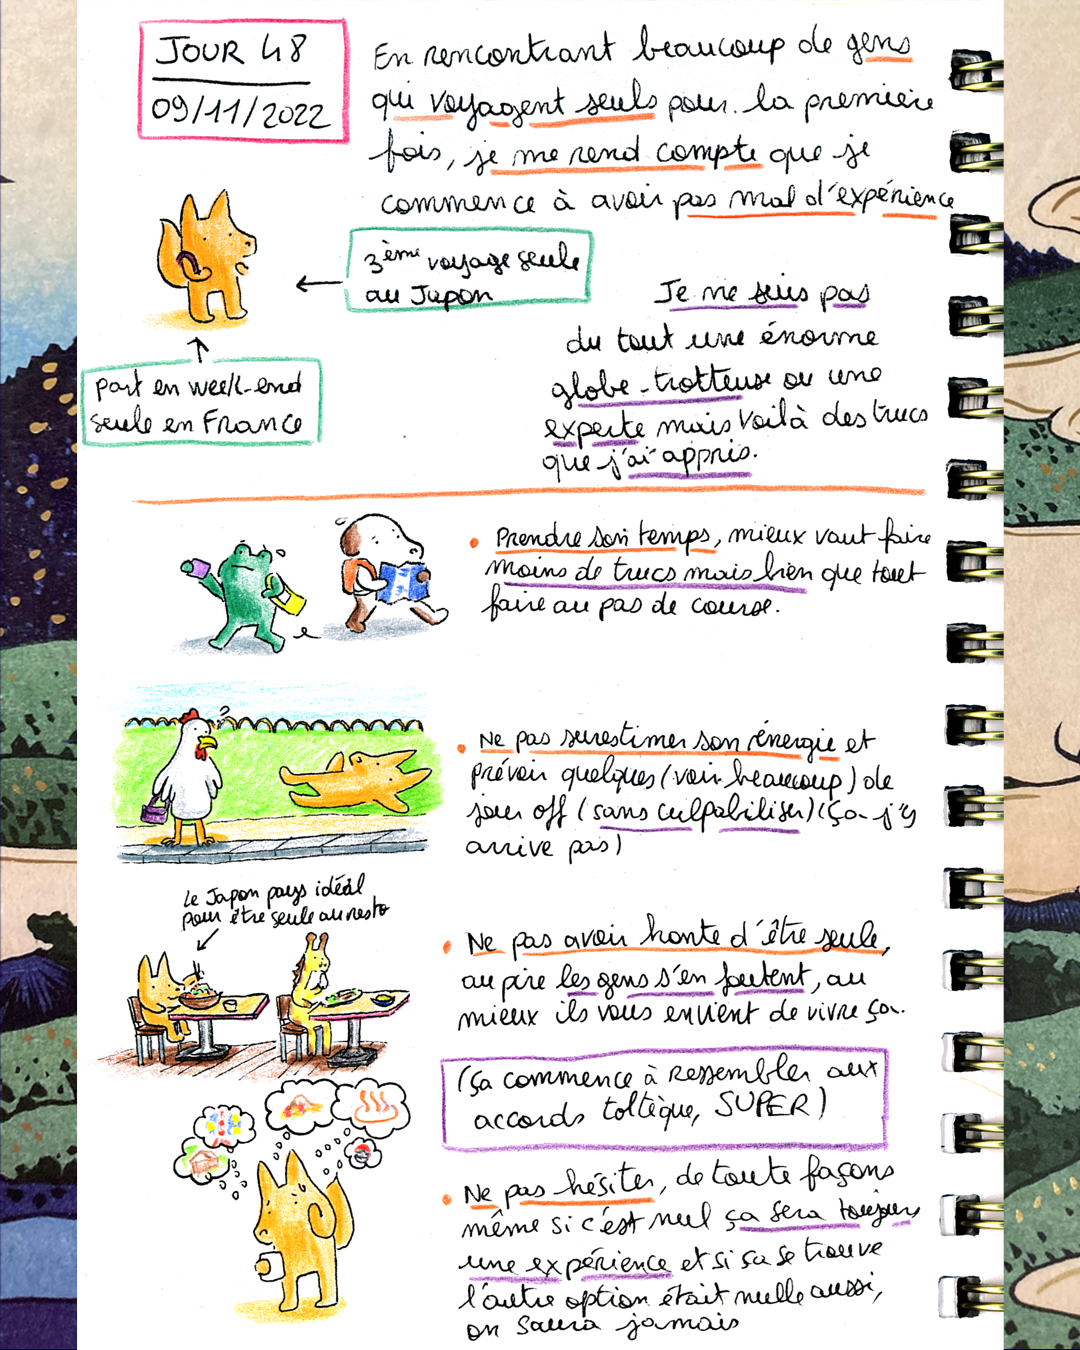 JOUR 48
09/11/2022
En rencontrant beaucoup de gens
qui voyagent seuls pour la première
fois, je me rend compte que je
commence à avoir pas mal d'expérience
3ème voyage seule
au Japon
part en week-end
seule en France
Je ne suis pas
du tout une énorme
globe-trotteuse ou une
experte mais voilà des trucs
que j'ai appris.
• Prendre son temps, mieux vaut faire
moins de trucs mais bien que tout
faire au pas de course.
• Ne pas surestimer son énergie et
prévoir quelques (voir beaucoup) de
jour off (sans culpabiliser) (ça j'y
arrive pas)
Le Japon pays idéal
pour être seule au resto
• Ne pas avoir honte d'être seule,
au pire les gens s'en foutent, au
mieux ils vous envient de vivre ça.
(ça commence à ressembler aux
accords toltèque, SUPER)
• Ne pas hésiter, de toute façons
même si c'est nul ça sera toujours
une expérience et si ça se trouve
l'autre option était nulle aussi,
on saura jamais